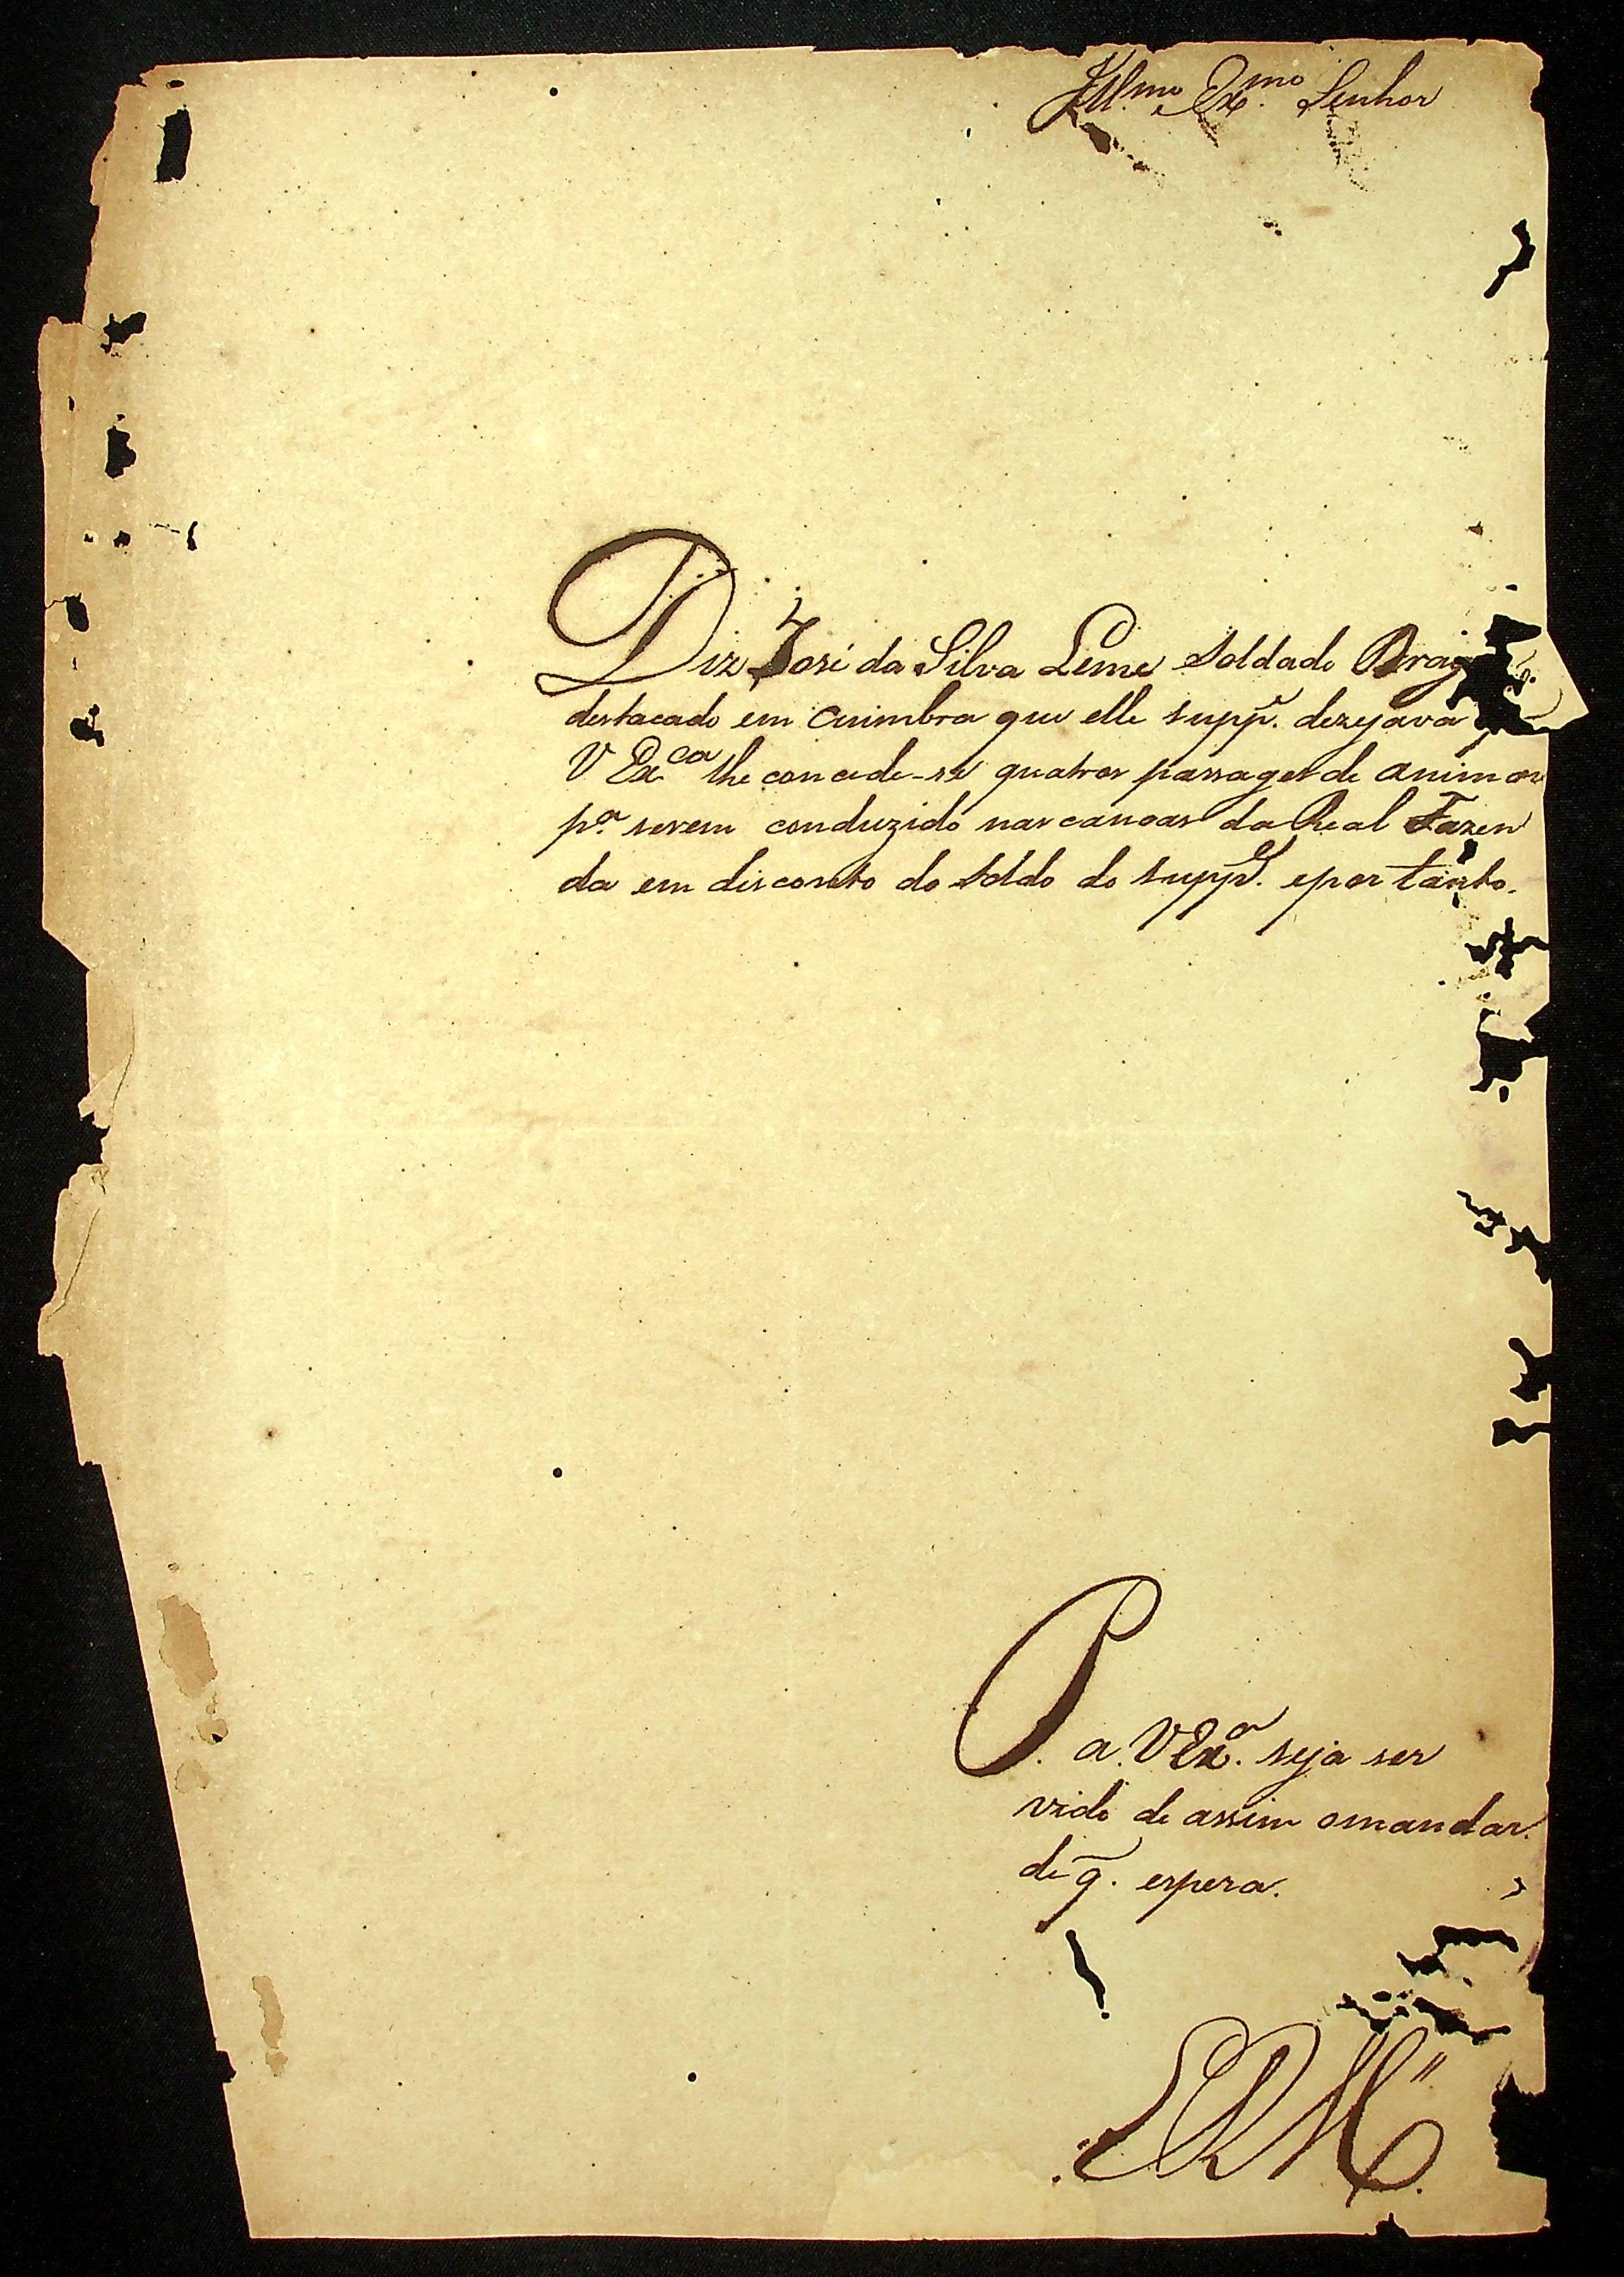 Ill.mo e Ex.mo Senhor
Diz José da Silva Leme Soldado Drag
destacado em Cuimbra que elle supp.e dezejava
V Ex.ca lhe concede-se quatros passages de animaes
p.a serem conduzido nas canoas da Real Fazen
da em disconto do Soldo do supp.e e por tanto.
P. a V Ex.a seja ser
vido de assim o mandar.
de q̃. espera.
E R M.ce